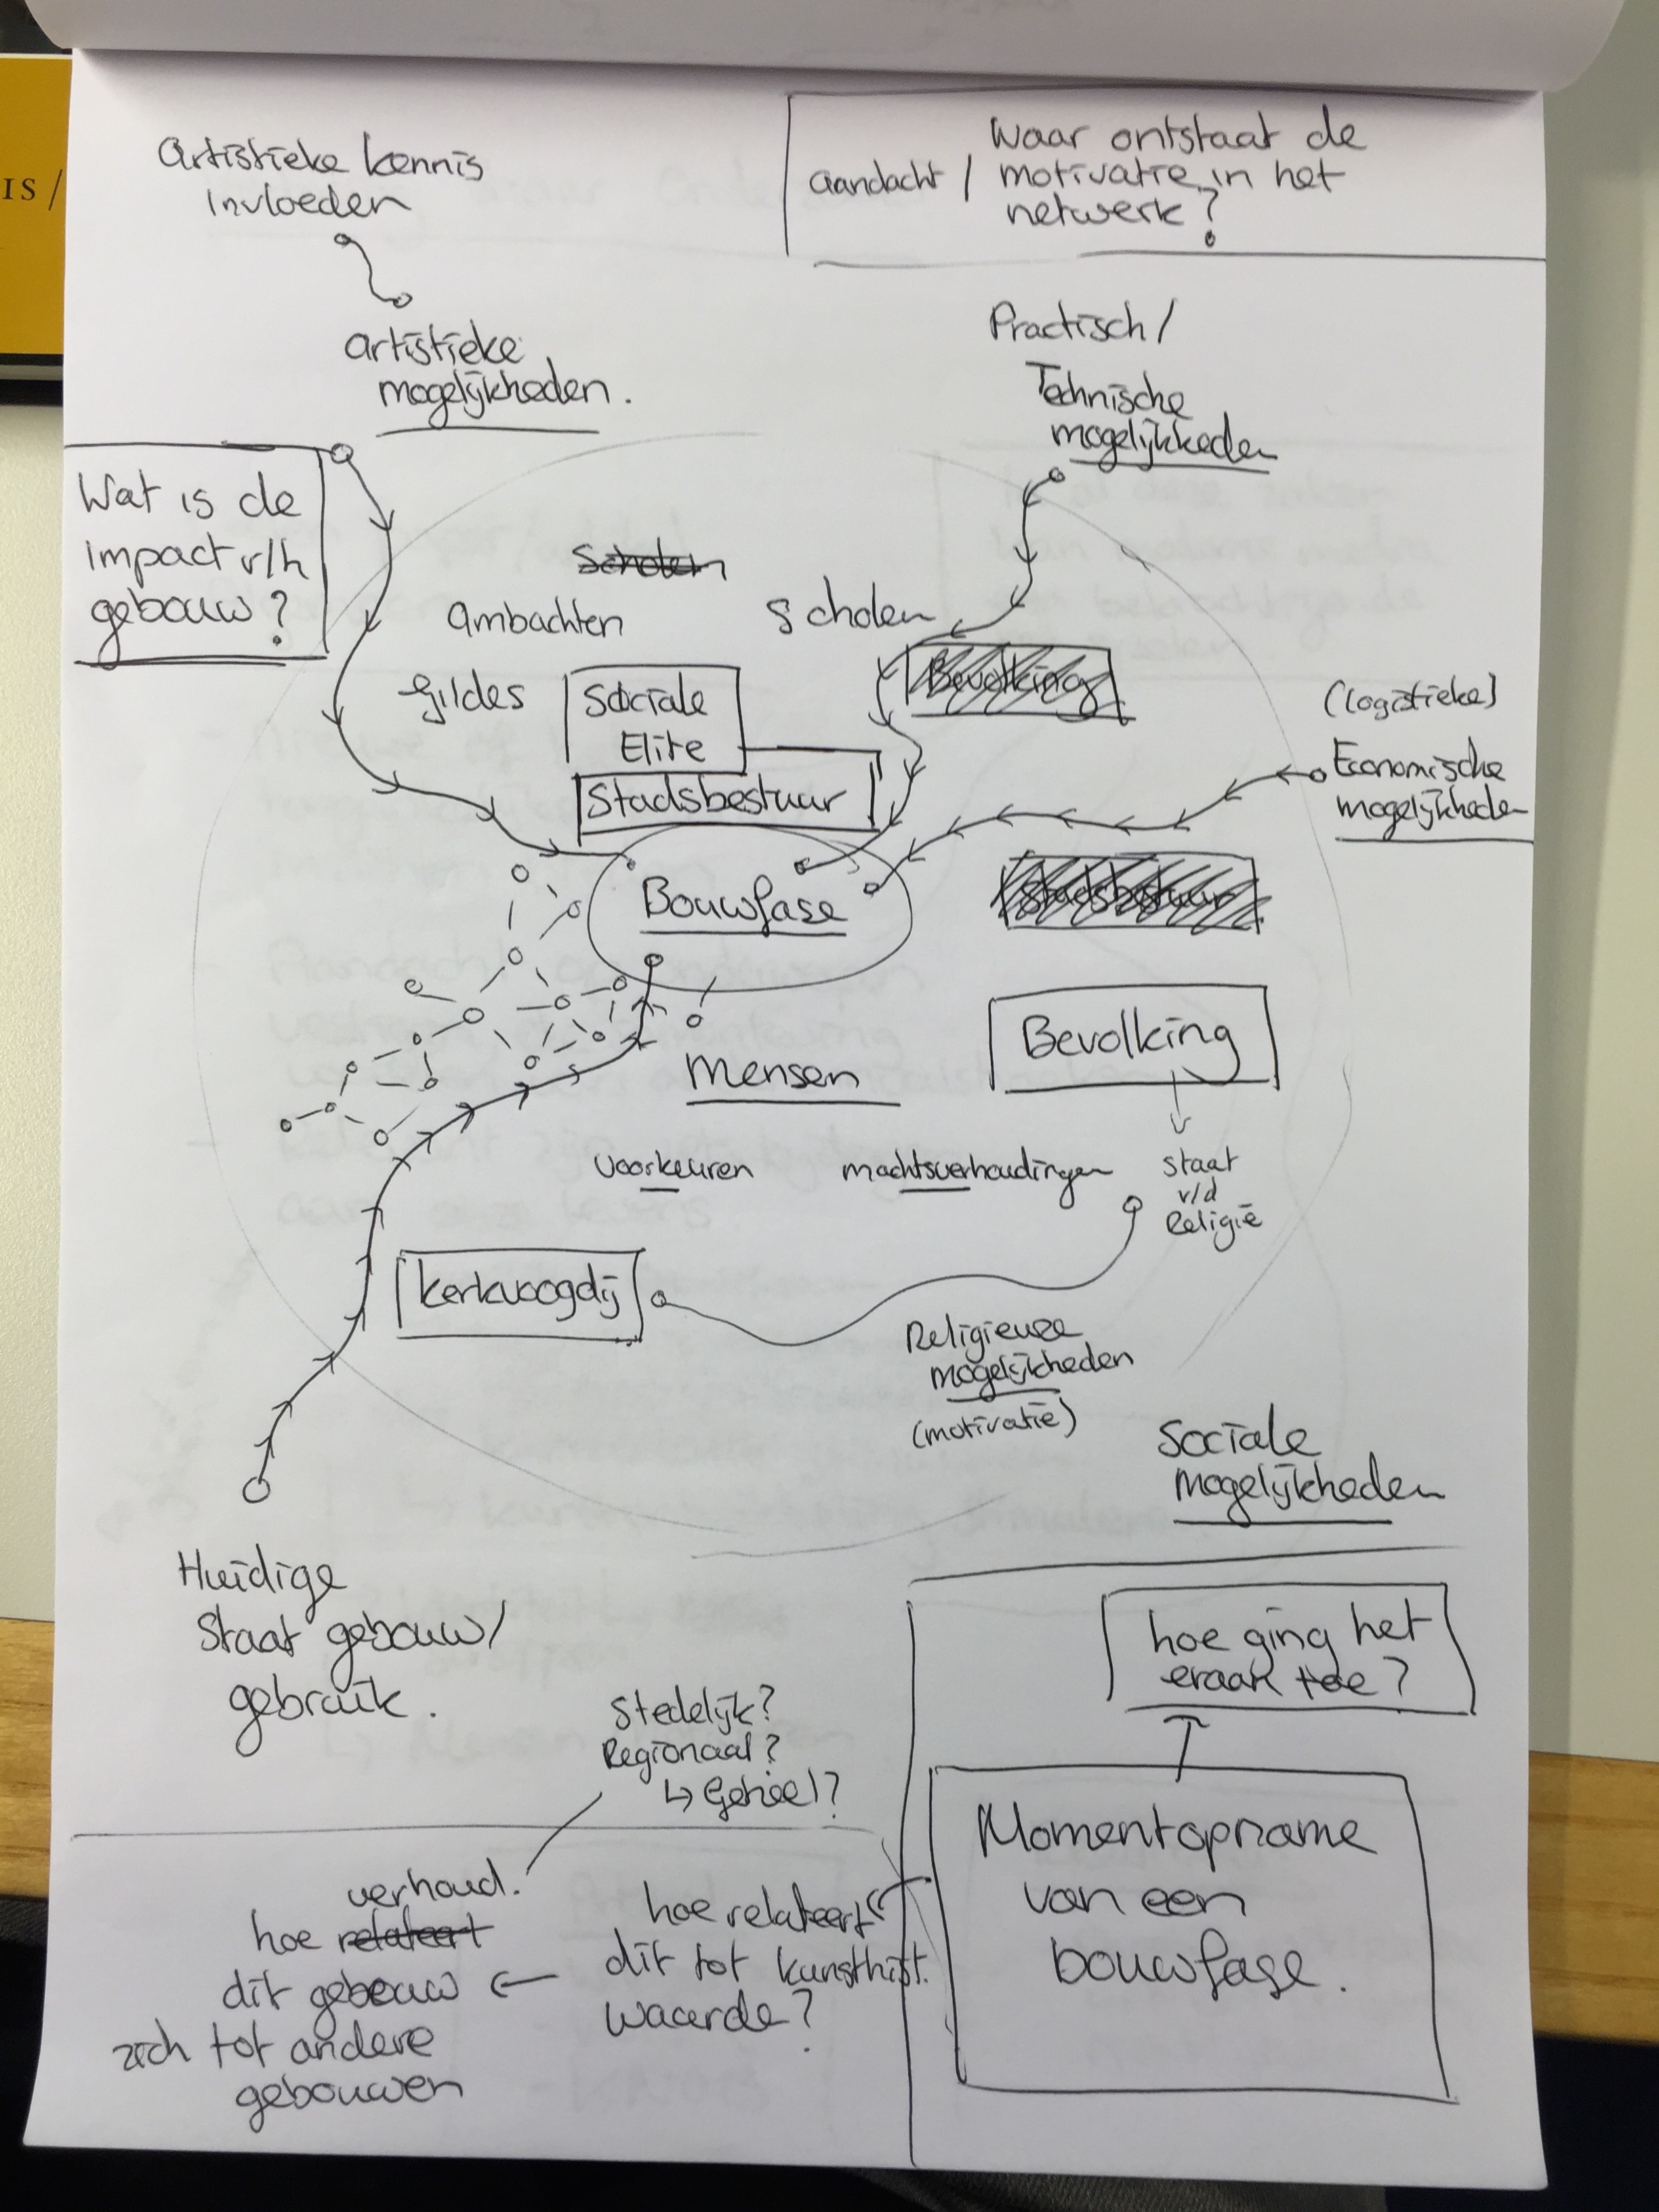 IS/
Artistieke kennis
Invloeden
Waar ontstaat de
aandacht / motivatie in het
netwerk?
artistieke
mogelijkheden.
Practisch/
Technische
mogelijkheden
Wat is de
impact v/h
gebouw?
Scholen
Ambachten
Scholen
Gildes
Sociale
Elite
Bevolking
(logistieke)
Economische
mogelijkheden
Stadsbestuur
Bouwfase
Stadsbestuur
Bevolking
Mensen
voorkeuren
machtsverhoudingen
staat
v/d
Religie
Kerkvoogdij
Religieuze
mogelijkheden
(motivatie)
Sociale
mogelijkheden
Huidige
Staat gebouw/
gebruik.
hoe ging het
eraan toe?
Stedelijk?
Regionaal?
↳ Geheel?
Momentopname
van een
bouwfase.
verhoud.
hoe relateert
dit gebouw
zich tot andere
gebouwen
hoe relateert
dit tot kunsthist.
waarde?